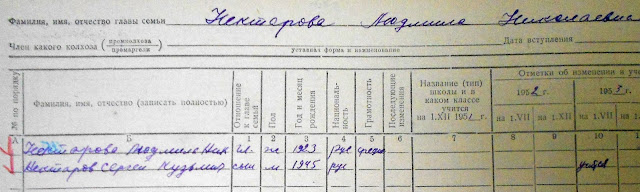 Фамилия, имя, отчество главы семьи Нектарова Людмила Николаевна
Член какого колхоза (промколхоза / промартели) Дата вступления
уставная форма и наименование
№ по порядку
Фамилия, имя, отчество (записать полностью)
Отношение к главе семьи
Пол
Год и месяц рождения
Национальность
Грамотность
Последующие изменения
Название (тип) школы и в каком классе учится
на 1.XII 1951 г.
Отметки об изменении в уч
1952 г.
1953 г.
на 1.VII
на 1.XII
на 1.VII
А Б 1 2 3 4 5 6 7 8 9 10
Нектарова Людмила Ник гл. ж 1923 рус средне
Нектаров Сергей Кузьмич сын м 1945 рус